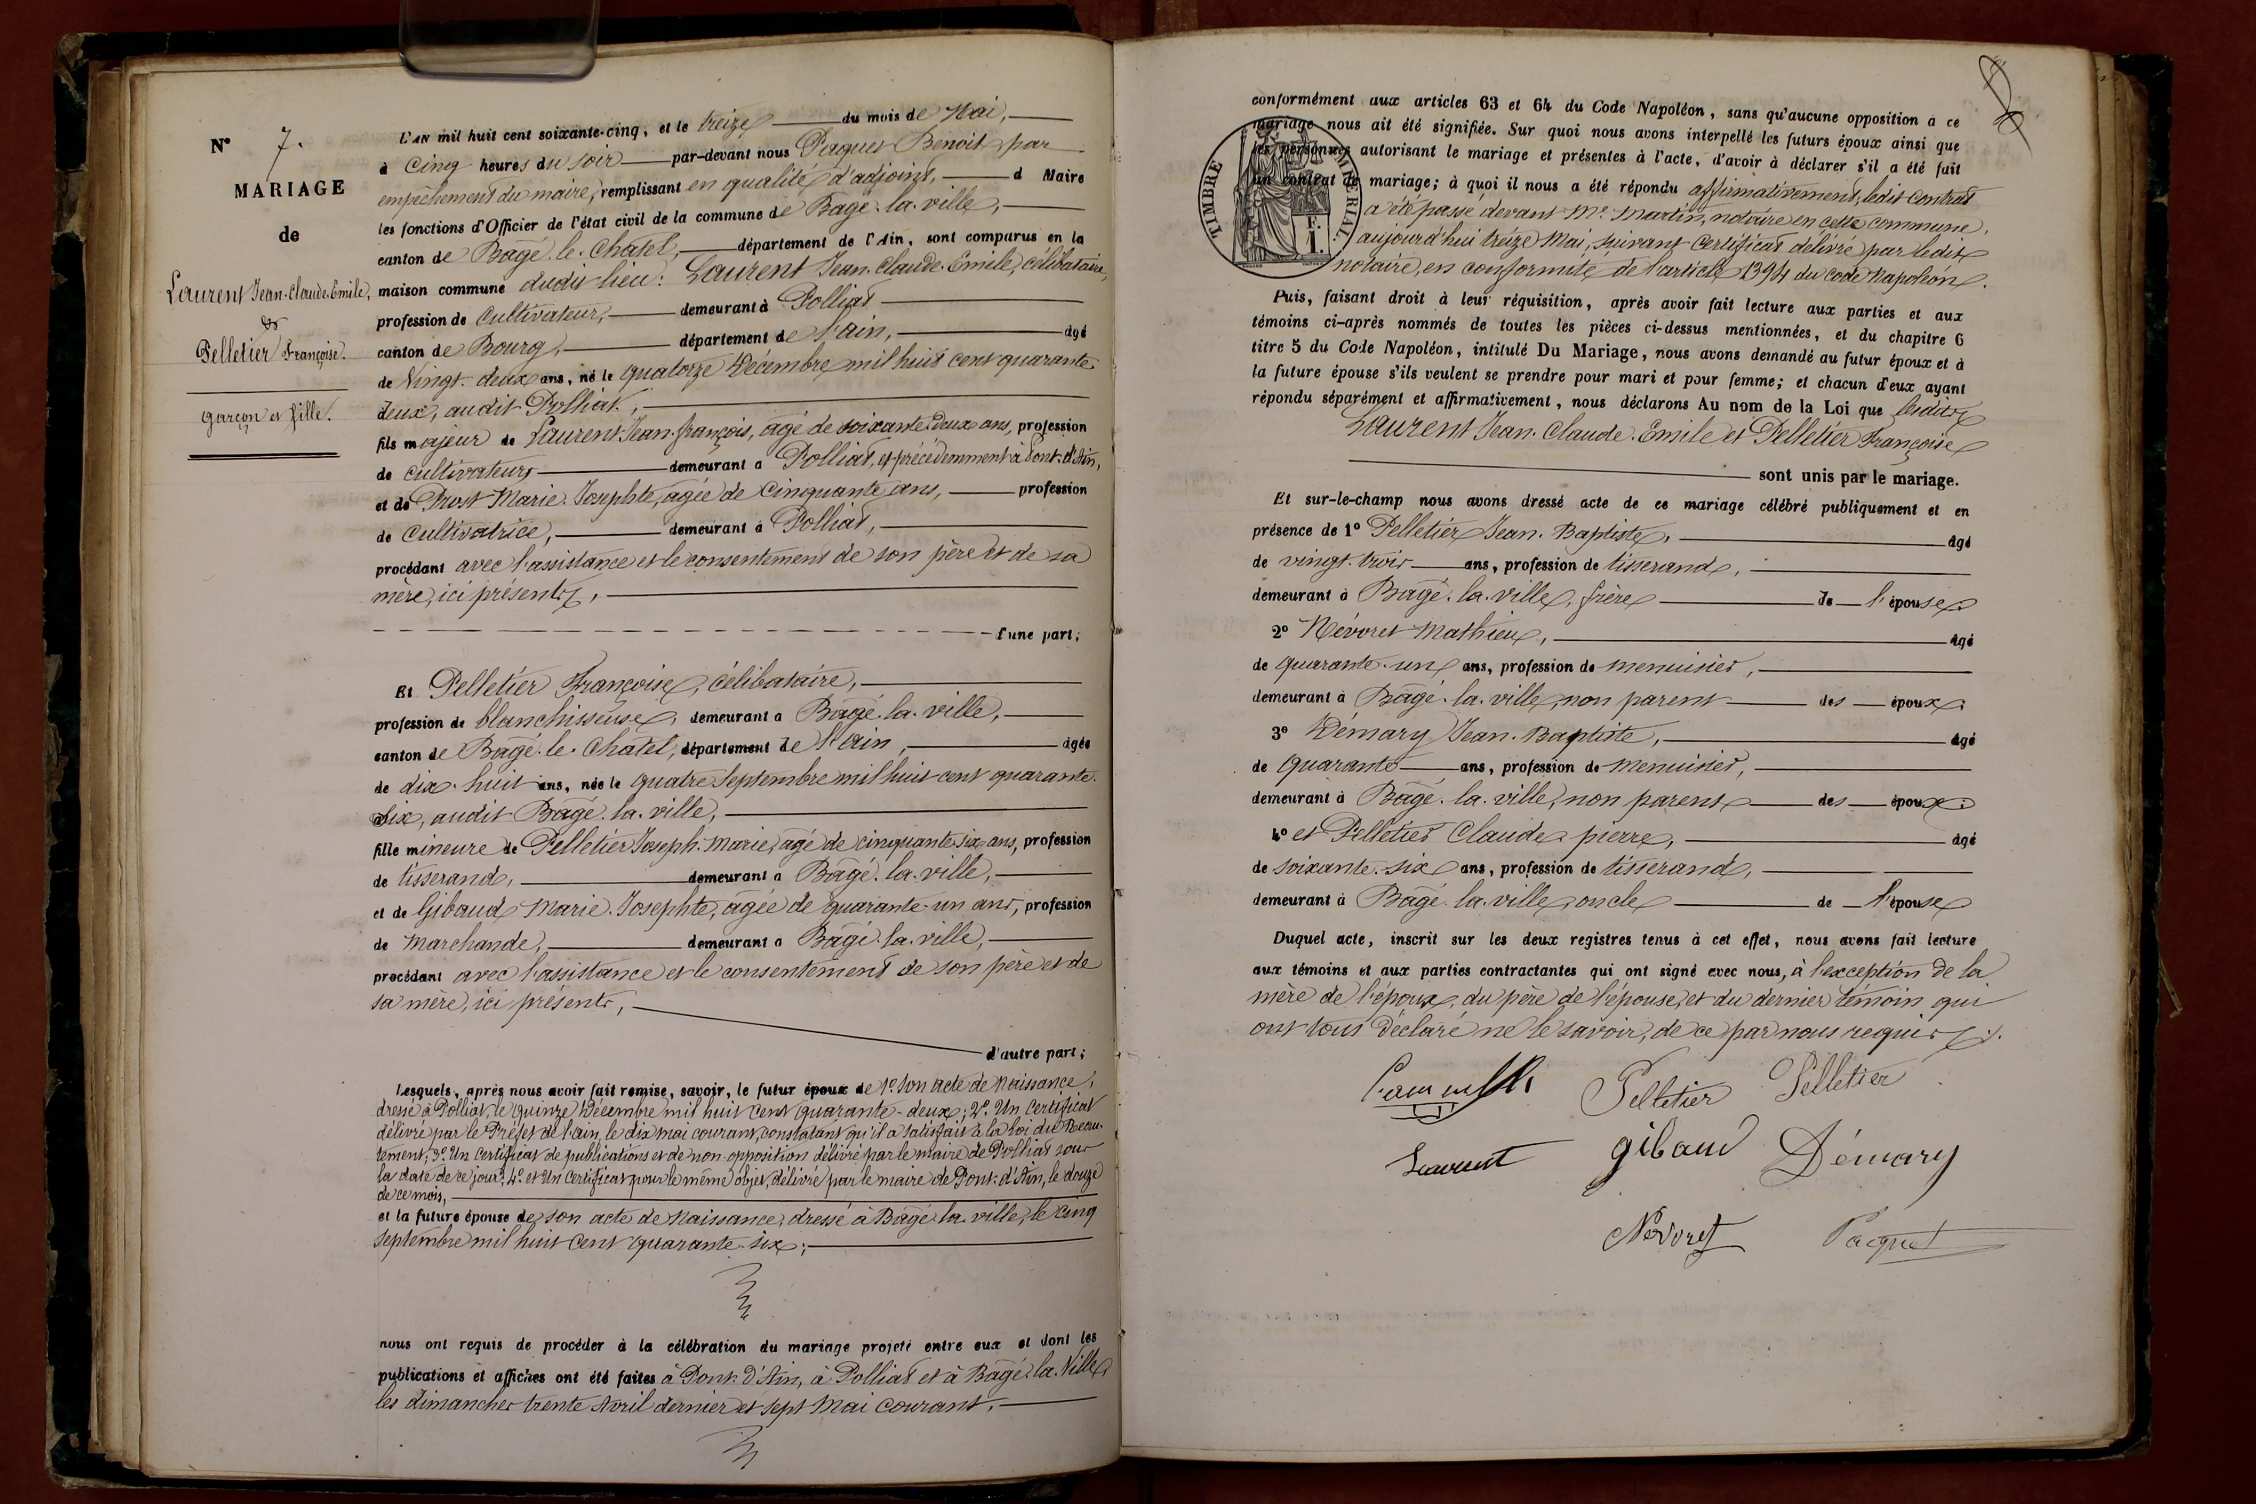 N° 7.
MARIAGE
de
Laurent Jean-Claude-Emile,
&
Pelletier Françoise.
garçon et fille.
L'AN mil huit cent soixante-cinq, et le treize du mois de Mai,
à cinq heures du soir par-devant nous Paquet Benoit par
empêchement du maire, remplissant en qualité d'adjoint, d Maire
les fonctions d'Officier de l'état civil de la commune de Bagé-la-ville,
canton de Bagé-le-Chatel, département de l'Ain, sont comparus en la
maison commune dudit lieu: Laurent Jean-Claude-Emile, célibataire,
profession de Cultivateur, demeurant à Polliat
canton de Bourg, département de l'ain, âgé
de Vingt-deux ans, né le quatorze Décembre mil huit cent quarante
deux, audit Polliat,
fils majeur de Laurent Jean-françois, agé de soixante-deux ans, profession
de cultivateur, demeurant à Polliat, et précédemment à Pont-d'Ain,
et de Prost Marie-Josephte, agée de cinquante ans, profession
de cultivatrice, demeurant à Polliat,
procédant avec l'assistance et le consentement de son père et de sa
mère, ici présents,
d'une part;
Et Pelletier Françoise, célibataire,
profession de blanchisseuse, demeurant à Bagé-la-ville,
canton de Bagé-le-Chatel, département de l'ain, âgée
de dix-huit ans, née le quatre Septembre mil huit cent quarante-
six, audit Bagé-la-ville,
fille mineure de Pelletier Joseph-Marie, agé de cinquante six ans, profession
de tisserand, demeurant à Bagé-la-ville,
et de Gibaud Marie-Josephte, agée de quarante-un ans, profession
de Marchande, demeurant à Bagé-la-ville,
procédant avec l'assistance et le consentement de son père et de
sa mère, ici présents,
d'autre part;
Lesquels, après nous avoir fait remise, savoir, le futur époux de 1° son acte de Naissance,
dressé à Polliat, le quinze Décembre mil huit cent quarante-deux; 2° Un Certificat
délivré par le Préfet de l'ain, le dix mai courant, constatant qu'il a satisfait à la loi du Recru-
tement; 3° Un certificat de publications et de non-opposition délivré par le maire de Polliat sous
la date de ce jour; 4° et Un Certificat pour le même objet, délivré par le maire de Pont-d'Ain, le douze
de ce mois,
et la future épouse de son acte de Naissance, dressé à Bagé-la-ville, le cinq
septembre mil huit cent quarante-six;
nous ont requis de procéder à la célébration du mariage projeté entre eux et dont les
publications et affiches ont été faites à Pont-d'Ain, à Polliat et à Bagé-la-Ville,
les dimanches trente Avril dernier et sept Mai courant.
conformément aux articles 63 et 64 du Code Napoléon, sans qu'aucune opposition à ce
mariage nous ait été signifiée. Sur quoi nous avons interpellé les futurs époux ainsi que
les personnes autorisant le mariage et présentes à l'acte, d'avoir à déclarer s'il a été fait
un contrat de mariage; à quoi il nous a été répondu affirmativement, ledit contrat
a été passé devant Me Martin, notaire en cette commune,
aujourd'hui treize Mai, suivant certificat délivré par ledit
notaire, en conformité de l'article 1394 du code Napoléon.
TIMBRE IMPÉRIAL
Puis, faisant droit à leur réquisition, après avoir fait lecture aux parties et aux
témoins ci-après nommés de toutes les pièces ci-dessus mentionnées, et du chapitre 6
titre 5 du Code Napoléon, intitulé Du Mariage, nous avons demandé au futur époux et à
la future épouse s'ils veulent se prendre pour mari et pour femme; et chacun d'eux ayant
répondu séparément et affirmativement, nous déclarons Au nom de la Loi que lesdits
Laurent Jean-Claude-Emile et Pelletier Françoise
sont unis par le mariage.
Et sur-le-champ nous avons dressé acte de ce mariage célébré publiquement et en
présence de 1° Pelletier Jean-Baptiste, âgé
de vingt-trois ans, profession de tisserand,
demeurant à Bagé-la-ville, frère de l'épouse.
2° Névoret Mathieu, âgé
de quarante-un ans, profession de menuisier,
demeurant à Bagé-la-ville, non parent des époux.
3° Démary Jean-Baptiste, âgé
de Quarante ans, profession de menuisier,
demeurant à Bagé-la-ville, non parent des époux.
4° et Pelletier Claude-pierre, âgé
de soixante-six ans, profession de tisserand,
demeurant à Bagé-la-ville, oncle de l'épouse
Duquel acte, inscrit sur les deux registres tenus à cet effet, nous avons fait lecture
aux témoins et aux parties contractantes qui ont signé avec nous, à l'exception de la
mère de l'époux, du père de l'épouse, et du dernier témoin qui
ont tous déclaré ne le savoir, de ce par nous requis.
Pelletier Pelletier
Laurent gibaud Démary
Névoret Paquet